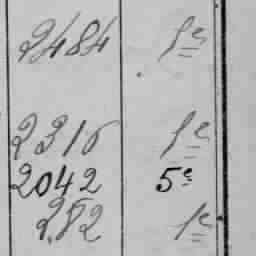 2484 1e
2316 1e
2042 5e
282 1e